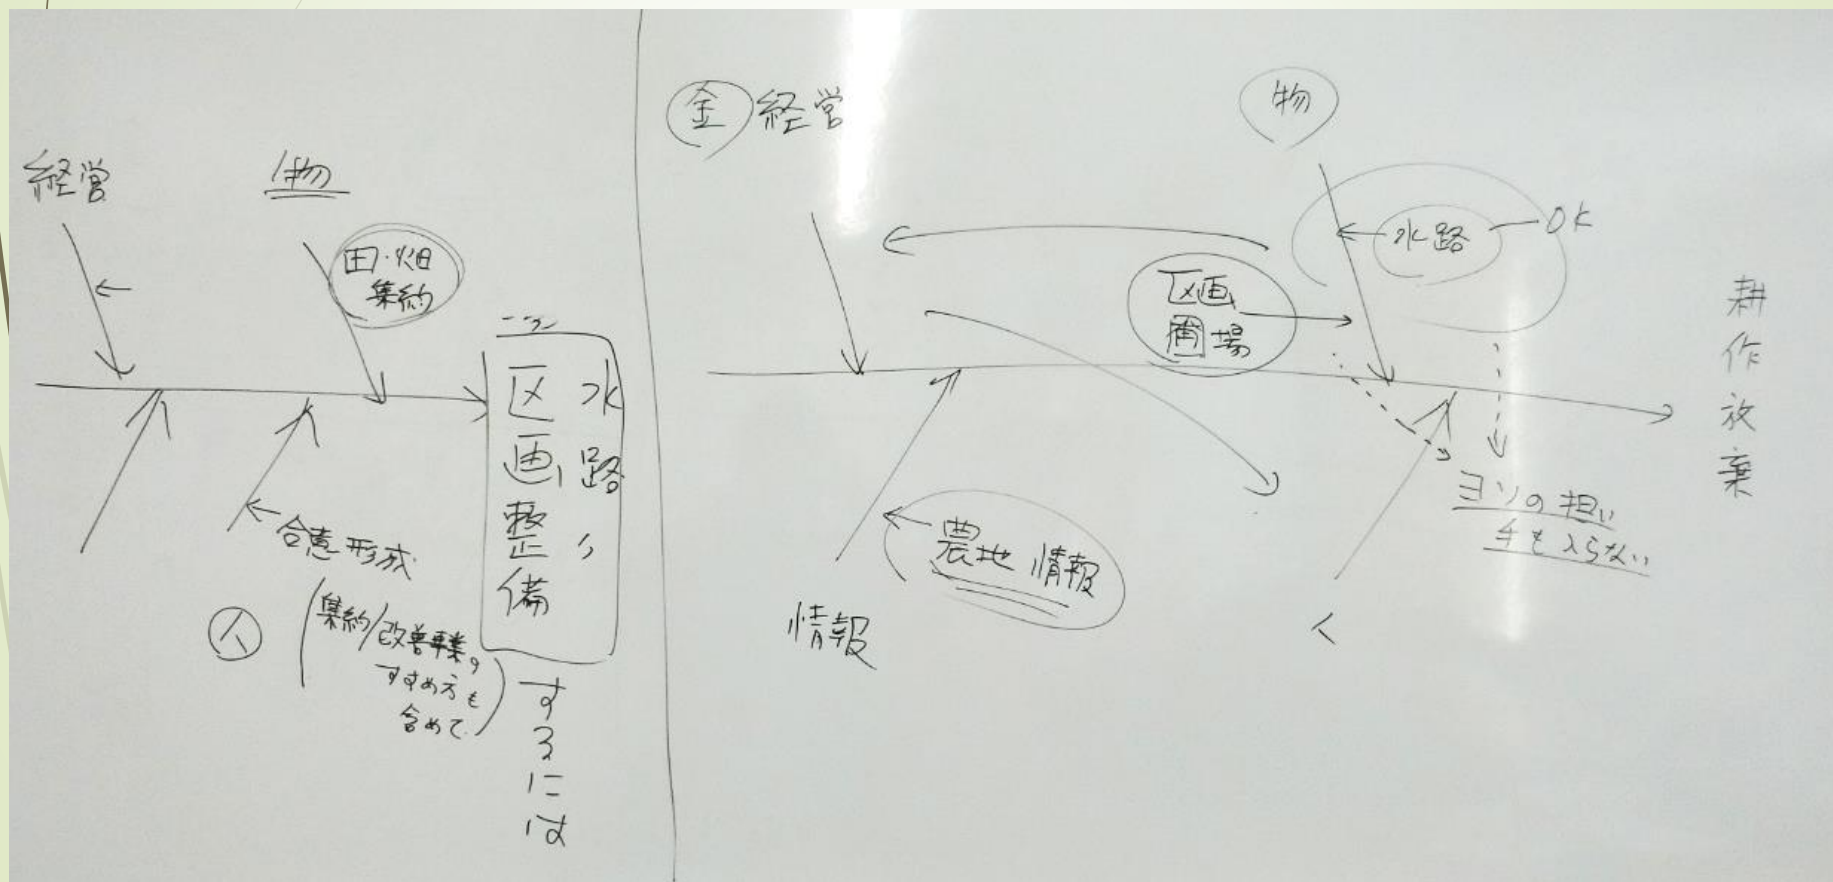 経営
物
田・畑
集約
水路、
区画整備
するには
合意形成
(集約/改善事業の
すすめ方も
含めて)
人
金 経営
物
水路
OK
区画
圃場
耕作放棄
ヨソの担い
手も入らない
農地情報
情報
人